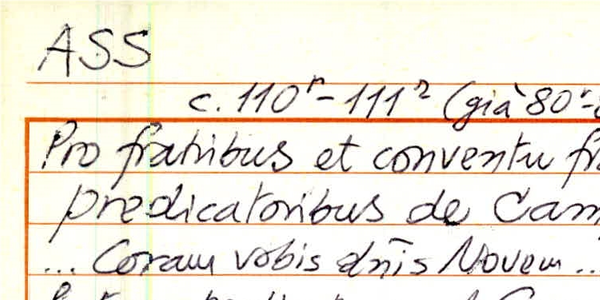 ASS
c. 110r - 111r (già 80r-
Pro fratribus et conventu
predicatoribus de Cam
... Coram vobis dnīs Novem ...